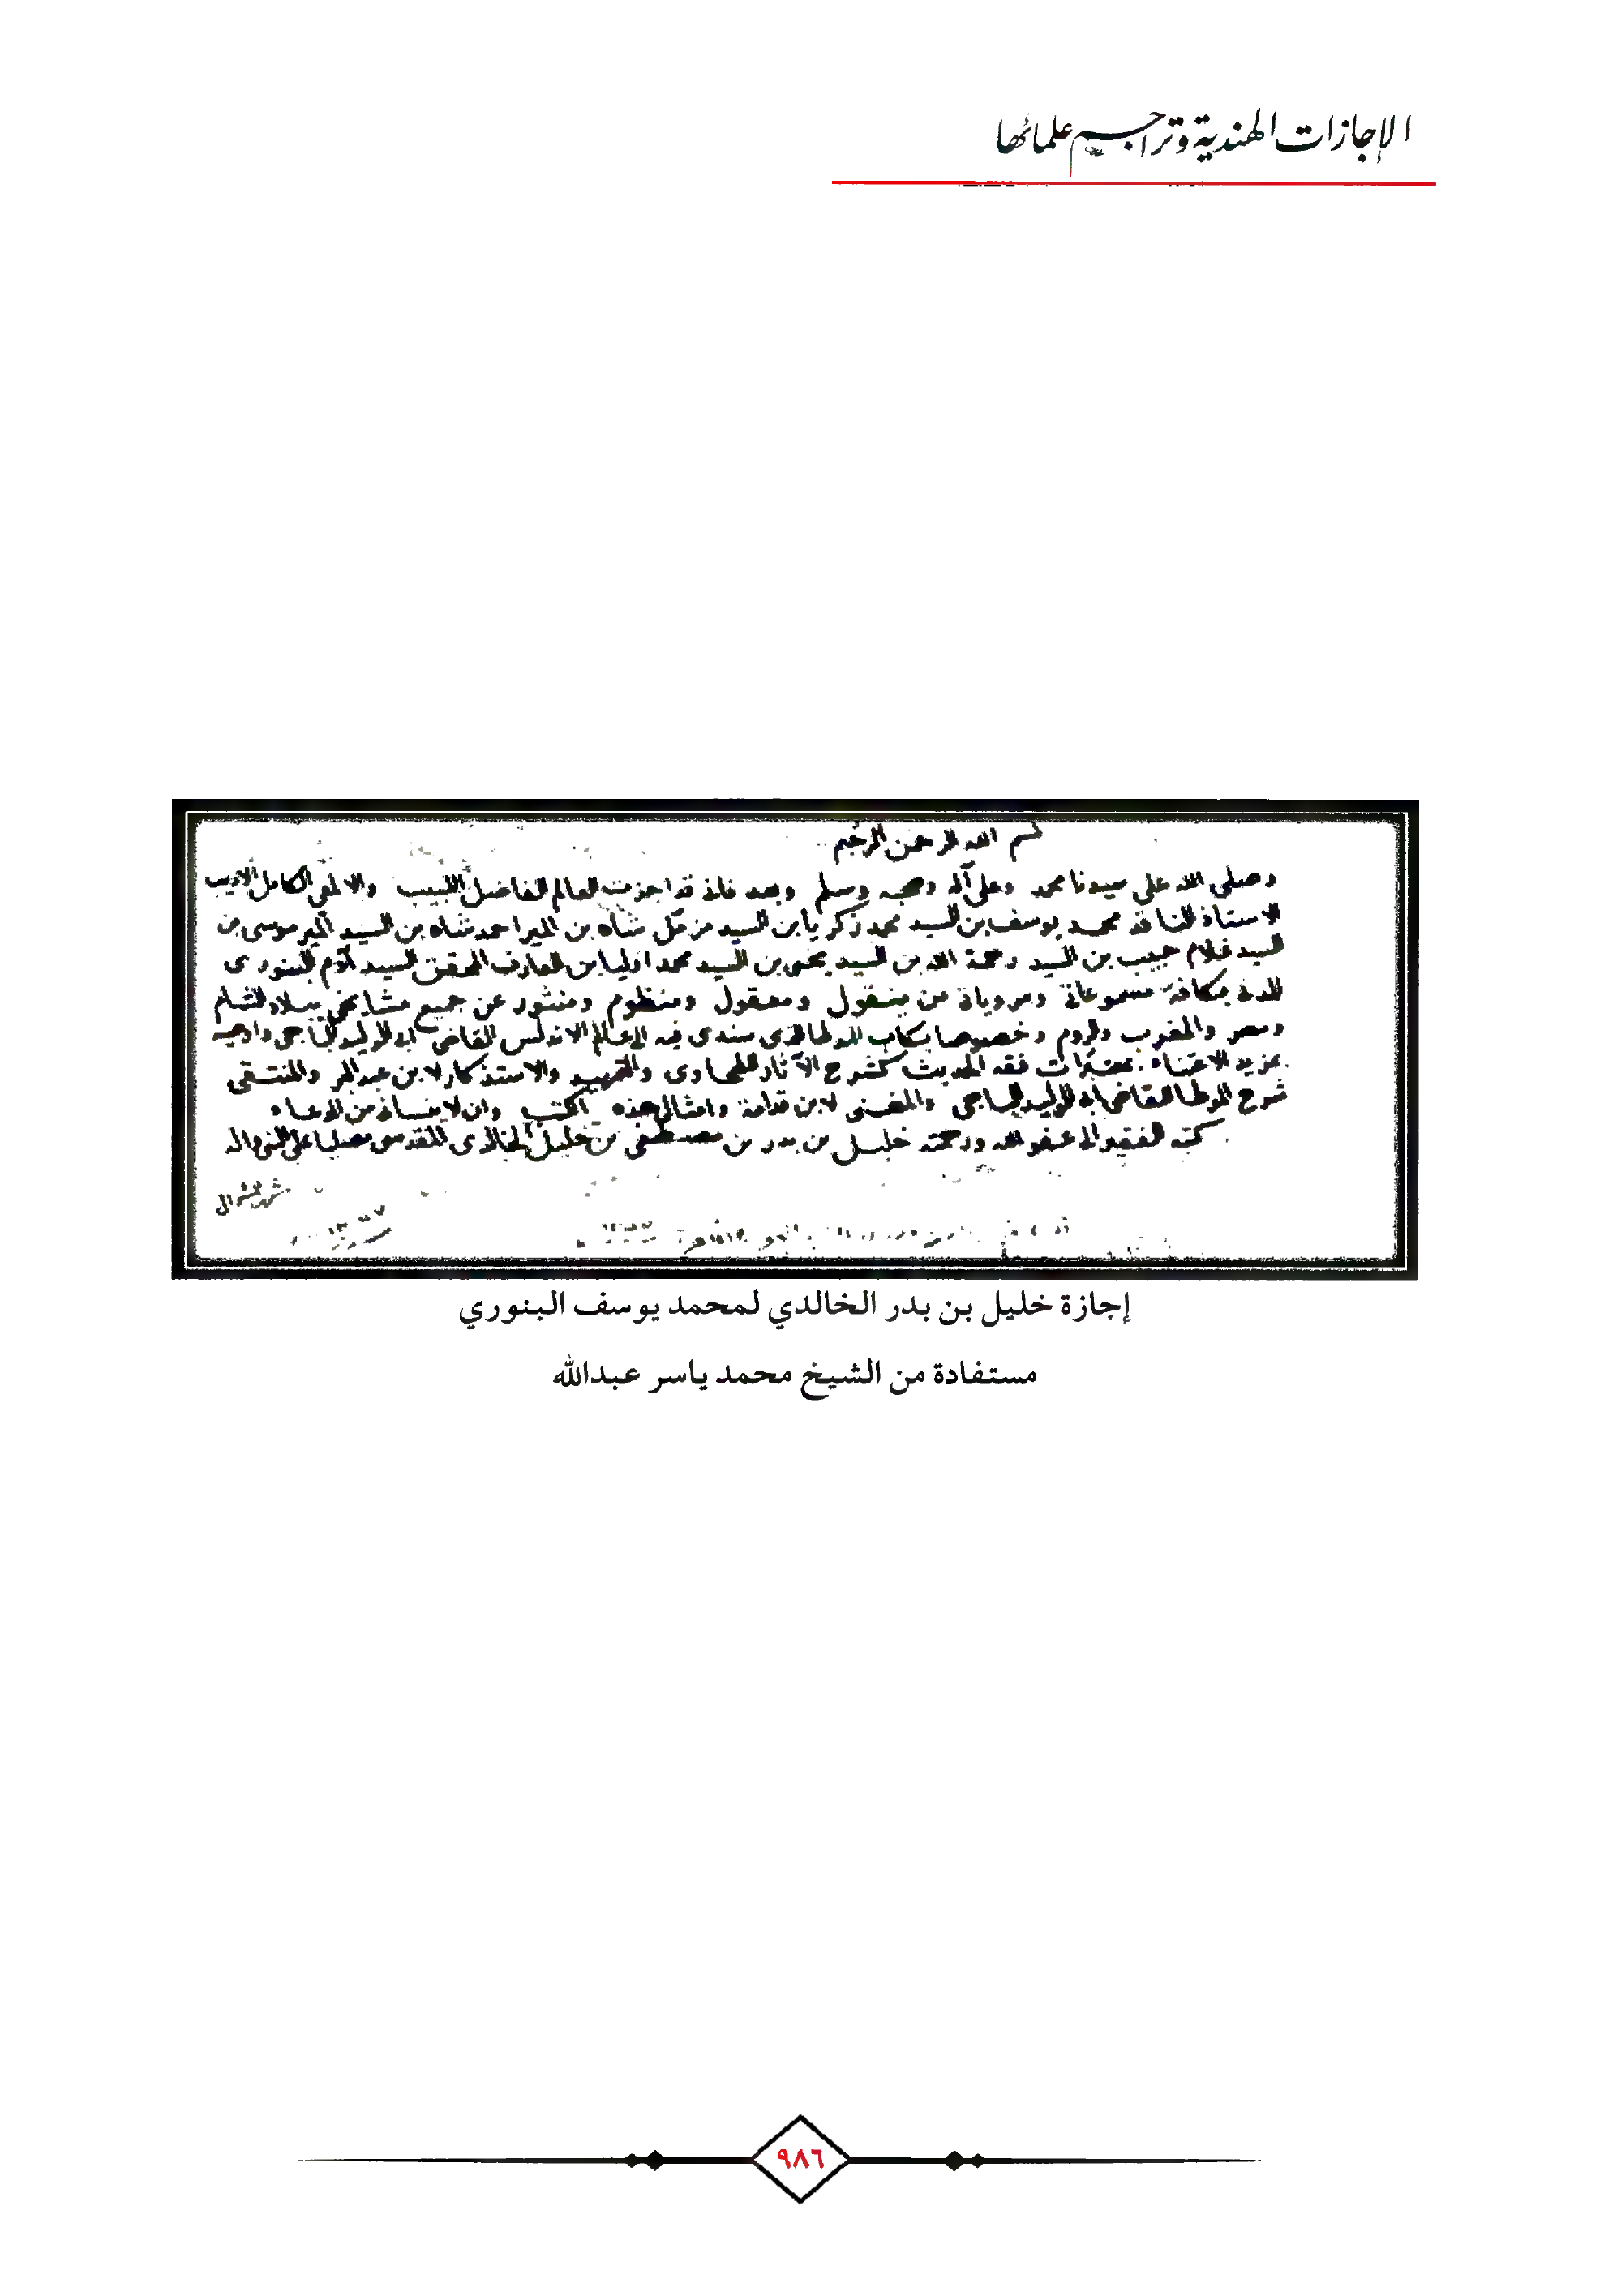 الإجازات الهندية وتراجم علمائها
بسم الله الرحمن الرحيم
وصلى الله على سيدنا محمد وعلى آله وصحبه وسلم وبعد فانى قد اجزت العالم الفاضل اللبيب والالمعي الكامل الاديب
الاستاذ الناقد محمد يوسف بن السيد محمد زكريا بن السيد مزمل شاه بن المير احمد شاه بن السيد المير موسى بن
السيد غلام حبيب بن السيد رحمة الله بن السيد يحيى بن السيد محمد اوليا بن العارف المحقق السيد آدم البنورى
المدنى بكافة مسموعاتى ومروياتى من منقول ومعقول ومنظوم ومنثور عن جميع مشايخى ببلاد الشام
ومصر والمغرب والروم وخصوصا بكتاب الموطا الذى سندى فيه الى عالم الاندلس القاضى ابى الوليد الباجى واوصيه
بمزيد الاعتناء بمعتبرات فقه الحديث كشرح الآثار للطحاوى والتمهيد والاستذكار لابن عبد البر والمنتقى
شرح الموطا للقاضى ابى الوليد الباجى والمغنى لابن قدامة وامثال هذه الكتب وان لا ينسانى من الدعاء
كتبه الفقير الى عفو الله ورحمته خليل بن بدر بن مصطفى بن خليل الخالدى المقدسى مصليا على النبى واله
إجازة خليل بن بدر الخالدي لمحمد يوسف البنوري
مستفادة من الشيخ محمد ياسر عبدالله
٩٨٦